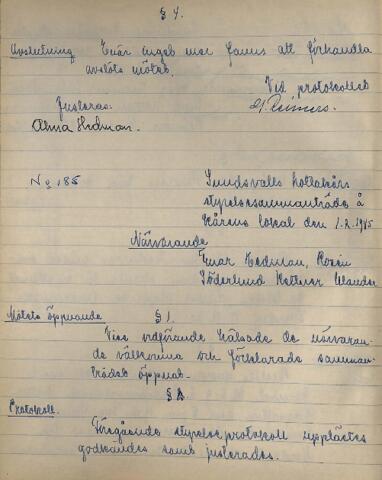 § 4.
Avslutning Enär inget mer fanns att förhandla
avslöts mötet.
Vid protokollet
Justeras:
Alma Hedman.
No 185
Sundsvalls kottakårs
styrelsesammanträde å
kårens lokal den 1.2.1945
Närvarande
Hedman,
Söderlund
Mötets öppnande § 1.
Vice ordförande hälsade de närvaran-
de välkomna och förklarade samman-
trädet öppnat.
§ 2
Protokoll.
Föregående styrelseprotokoll upplästes
godkändes samt justerades.